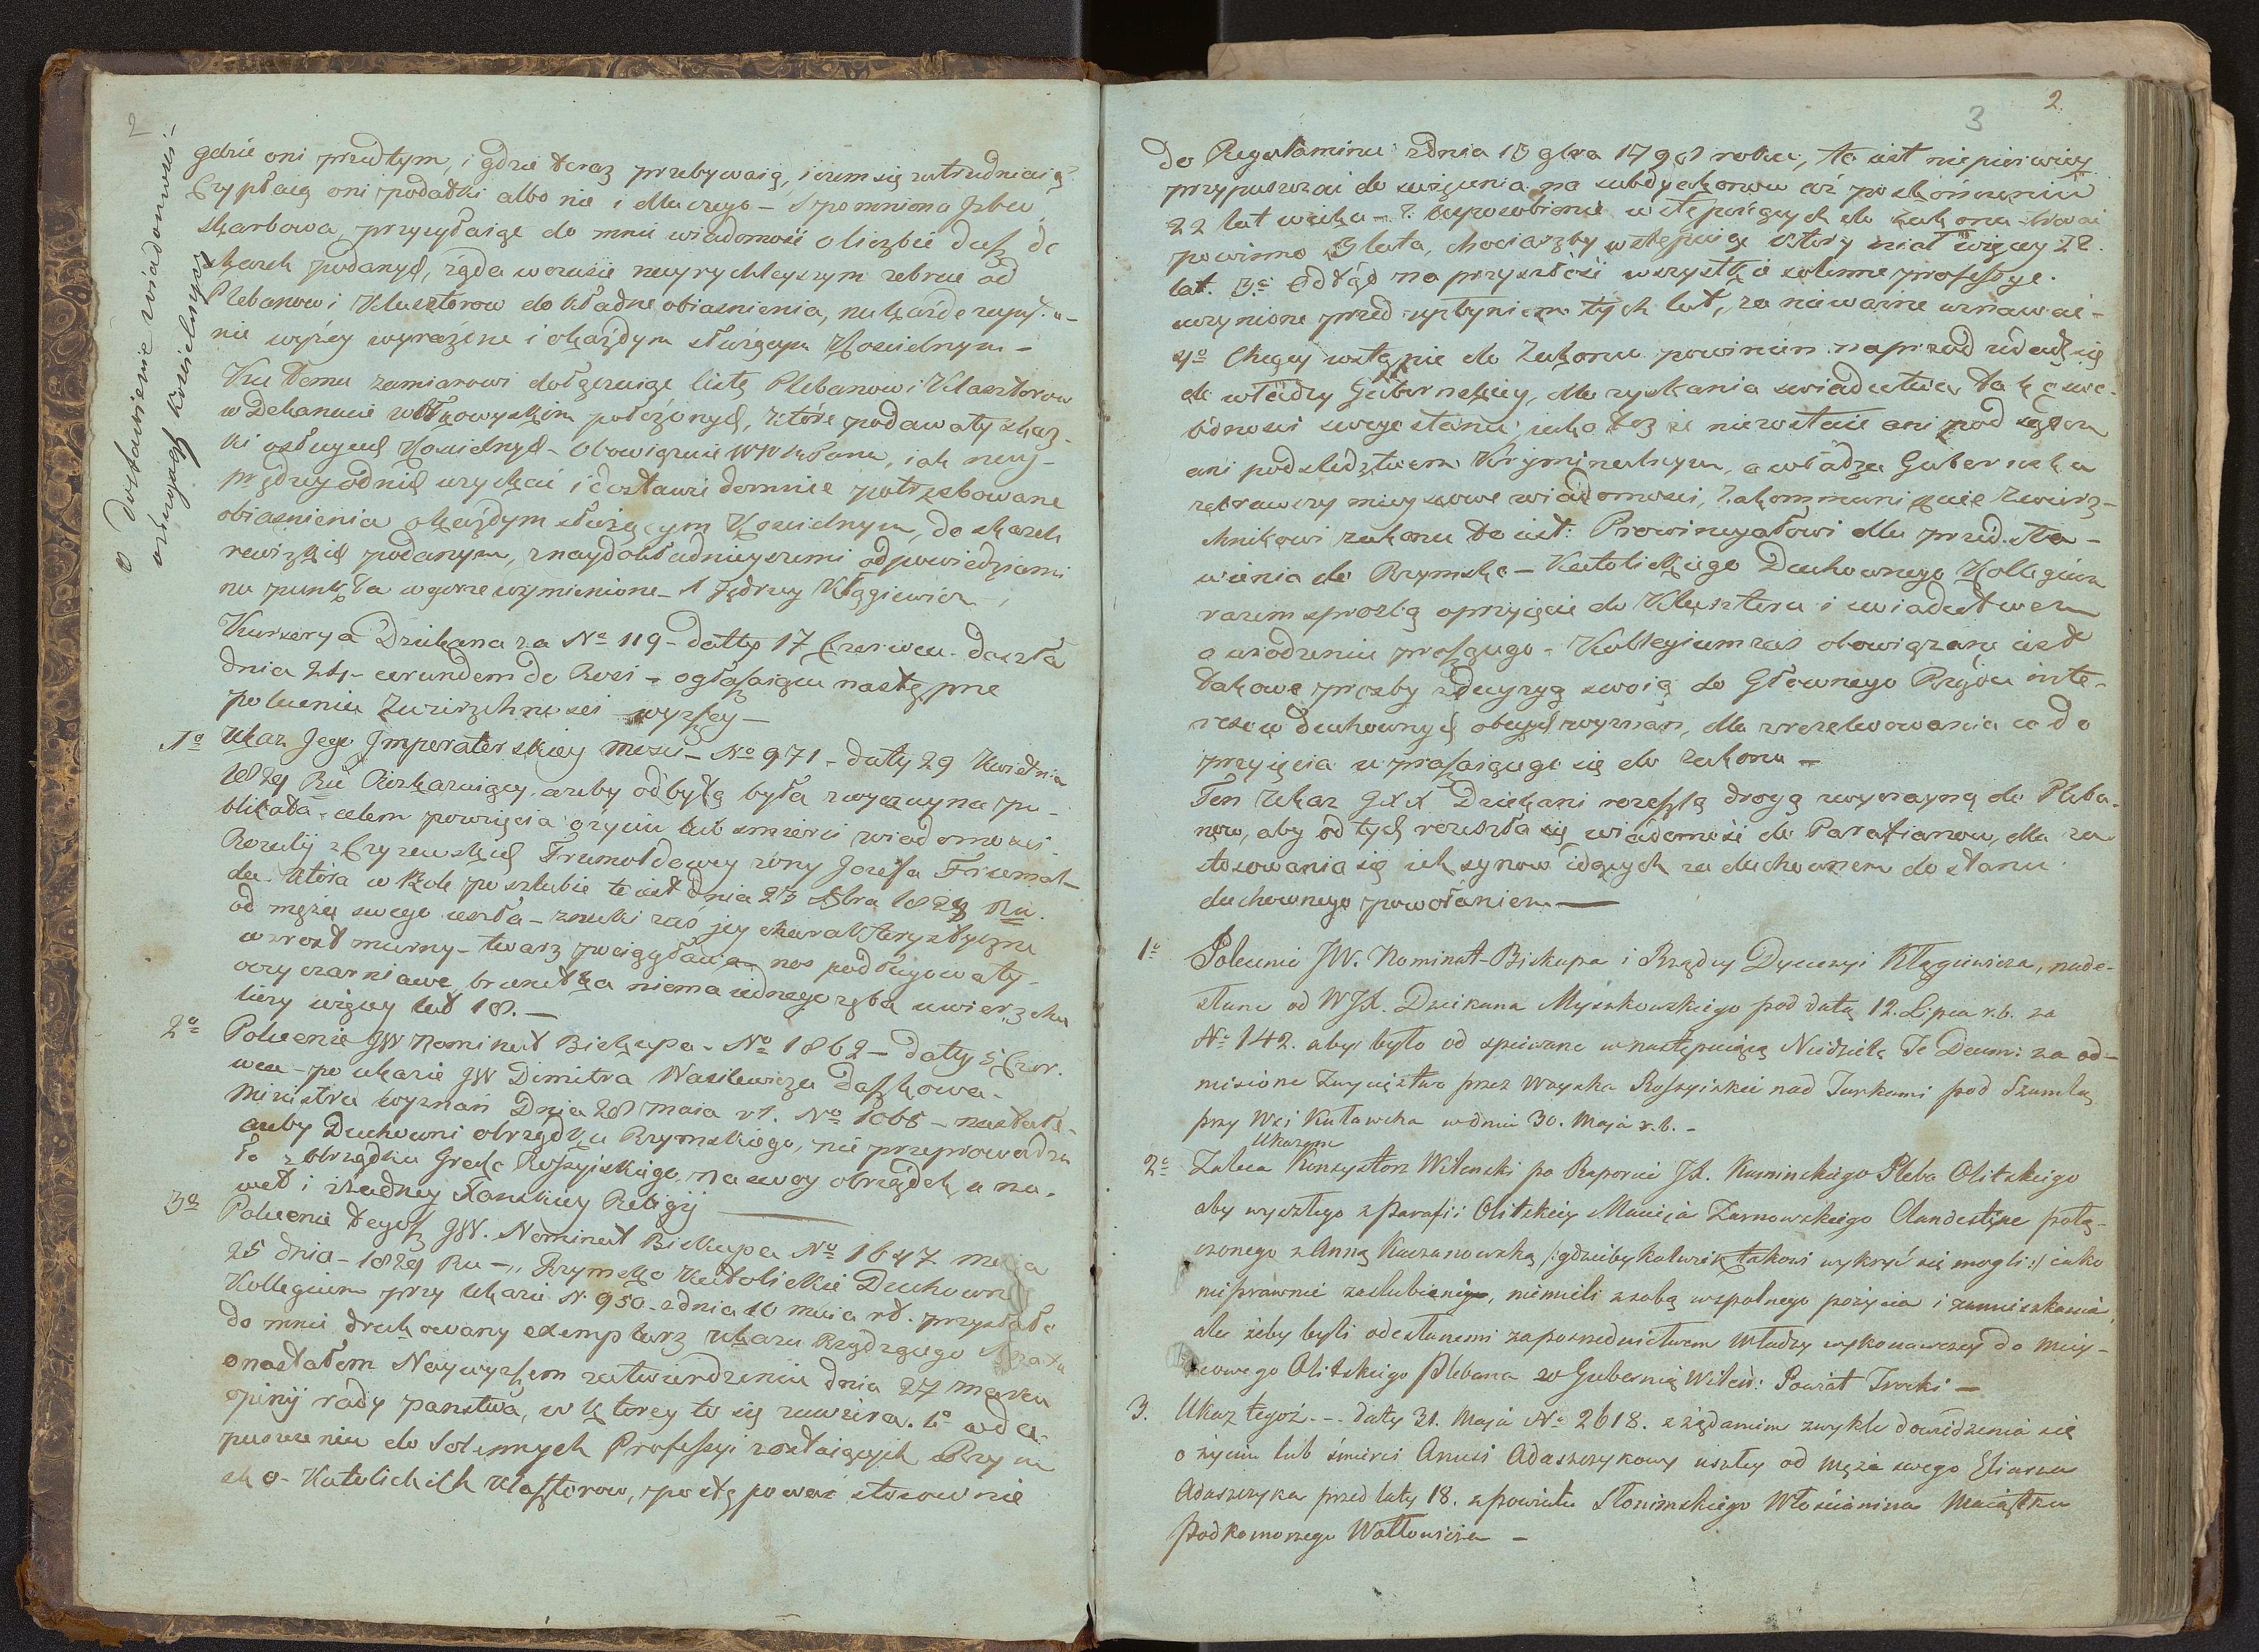 2
O dostawienie wiadomosci
osługach kościelnych
gdzie oni przedtym, i gdzie teraz przebywaią, iczem się zatrudniaią?
Czy płacą oni podatki albo nie i dla czego – Spomniona Jzba
skarbowa, przysyłaiąc do mnie wiadomość o liczbie dusz do
skazek podanych, żąda w czasie nayrychleyszym zebrać od
Plebanow i Klasztorow dokładne obiasnienia, na każde zapyta-
nie wyżey wyrażone i o każdym służącym Koscielnym –
Ku temu zamiarowi dołączaiąc listę Plebanow i Klasztorow
w Dekanacie Wołkowyskim położonych, które podawały skaz-
ki osługach Koscielnych – Obowiązuie WW Pana, iak nay-
prędzey od nich uzyskać i dostawić do mnie potrzebowane
obiasnienia o każdym służącym Koscielnym, do skazek
rewizkich podanym, z naydokładnieyszemi odpowiedziami
na punkta w gorze wymienione – Jędrzey Kłągiewicz –
Kursorya Dziekana za No 119 – datty 17 Czerwca – doszła
dnia 24 – currundem do Rosi – ogłaszaiąca następne
polecenia Zwierzchnosci wyższey –
1o Ukaz Jego Jmperatorskiey Mosci – No 971 – daty 29 Kwietnia
1829 Ru Rozkazuiący, ażeby odbytą była zwyczayna pu-
blikata – celem powzięcia o życiu lub smierci wiadomosci
Rozalij z Czyzewskich Frumoldowey żony Jozefa Frumol-
da. Która w Rok po szlubie to iest dnia 23 8bra 1828 Ru.
od męża swego uszła – znaki zaś jey charakterystyczne
wzrost mierny – twarz pociągława nos podługowaty –
oczy czarniawe brunetka niema iednego zęba uwierzchu
liczy więcey lat 18. –
2o Polecenie JW Nominat Biskupa – No 1862 – daty 5 Czer-
wca – po ukazie JW Dimitra Wasilewicza Daszkowa –
Ministra wyznań Dnia 28 maia rt. No 1065 – nastałe –
ażeby Duchowni obrządku Rzymskiego, nie przeprowadza
li z obrządku Greko Rossyiskiego, na swoy obrządek, a na-
wet i żadney Pańskiey Religij –
3o Polecenie tegoż JW. Nominat Biskupa No 1647 Maja
25 dnia – 1829 Ru – „ Rzymsko Katolickie Duchowne
Kollegium przy Ukazie N. 950 – z dnia 10 maia rt. przysłało
do mnie drukowany exemplarz ukazu Rządzącego Senatu
o nastałem Naywyższem zatwierdzeniu dnia 27 Marca
opinij rady panstwa, w którey to się zawiera. 1o w do-
puszczeniu do Solennych Professyi zostaiących Rzym
sko – Katolickich Klasztorow, postępować stosownie
3 2.
do Regulaminu z dnia 13 9bra 1798 roku, to iest niepierwiey
przypuszczać do święcenia na subdyakonow aż po skończeniu
22 lat wieku – 2. Usposobienie wstępuiących do zakonu trwać
powinno 3 lata, chociażby wstępuiąc który miał więcey 22.
lat. 3o Odtąd na przyszłość wszystkie solenne professye.
uczynione przed upłynieniem tych lat, za nieważne uznawać –
4o Chcący wstąpić do Zakonu powinien naprzód udać się
do władzy Gubernskiey, dla zyskania swiadectwa tak o swo-
bodnosci swego stanu iako też że niezostaie ani pod sądem
ani pod sledztwem Kryminalnym, a władza Gubernska
zebrawszy mieyscowe wiadomosci, zakommunikuie Zwierz-
chnikowi zakonu to iest: Prowincyałowi dla przedsta-
wienia do Rzymsko – Katolickiego Duchownego Kollegium
razem z prozbą o przyięcie do Klasztoru i swiadectwem
o urodzeniu proszącego – Kollegium zaś obowiązane iest
takowe prozby z decyzyą swoią do Głownego Rządu inte-
resow duchownych obcych wyznań, dla zrezolwowania co do
przyięcia upraszaiącego się do zakonu –
Ten Ukaz JXX Dziekani rozeszlą drogą zwyczayną do Pleba-
now, aby od tych rozeszła się wiadomość do Parafianow, dla za
stosowania się ich synow idących za duchownem do stanu
duchownego powołaniem –
1o Polecenie JW. Nominat-Biskupa i Rządcy Dyecezyi Kłągiewicza, nade-
słane od WJX. Dziekana Myszkowskiego pod datą 12. Lipca r.b. za
No 142. aby było odspiewane w następuiącą Niedzielę Te Deum: za od-
niesione Zwycięztwo przez Woyska Rossyiskie nad Turkami pod Szumlą
przy Wsi Kulawcha w dniu 30. Maja r.b. –
Ukazem
2o Zaleca Konsystorz Wilenski po Raporcie JX. Kaminskiego Pleba Olitskiego
aby wyszłego z Parafii Olitskiey Macieja Zarnowskiego Clandestine połą-
czonego z Anną Kaczanowską /:gdzieby kolwiek takowi wykryć się mogli:/ iako
nieprawnie zaslubieni, niemieli z sobą wspolnego pożycia i zamieszkania,
ale żeby byli odesłanemi za posrednictwem Władzy wykonawczey do miey-
scowego Olitskiego Plebana w Gubernią Wileń: Powiat Trocki –
3. Ukaz tegoż – daty 31. Maja No 2618. z żądaniem zwykle dowiedzenia się
o życiu lub śmierci Anusi Adaszczykowey uszłey od męża swego Eliasza
Adaszczyka przed laty 18. z powiatu Słonimskiego Włościanina Maiątku
Podkomorzego Wołłowicza –